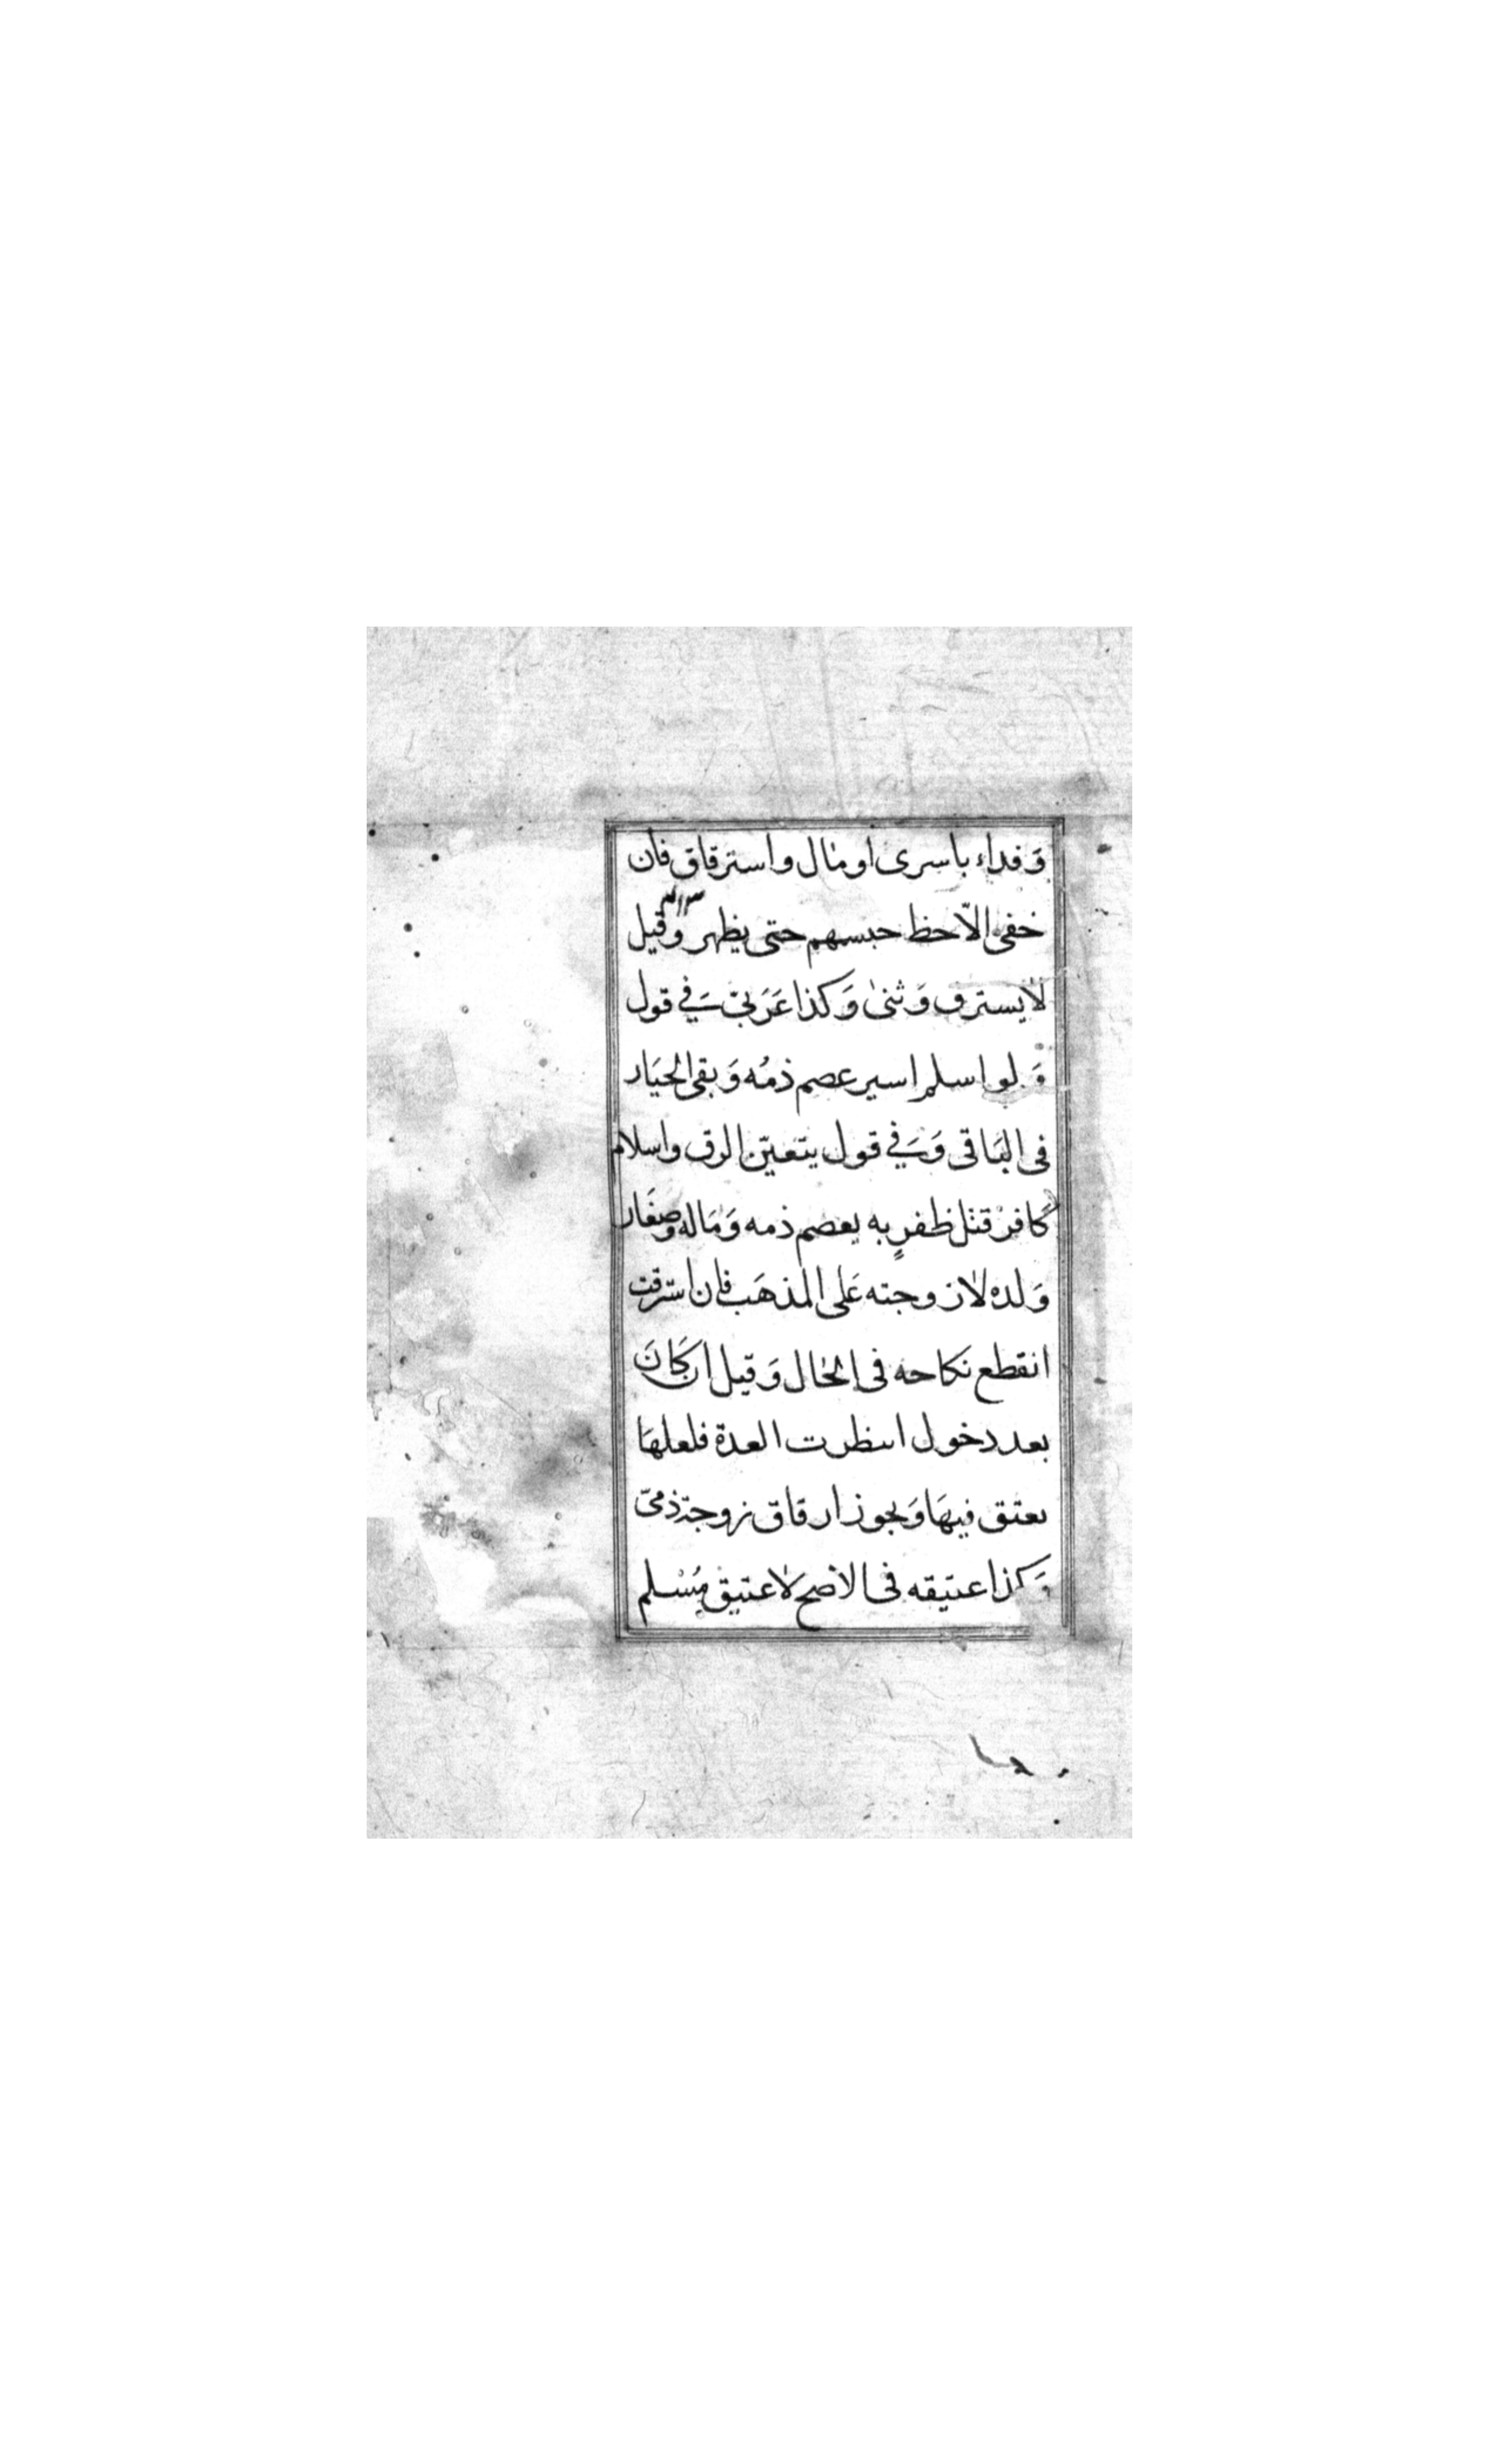 وَفداء باسرى اومال واسترقاق فان
خفى الاّحظ حبسهم حتى يظهر وقيل
لايسترق وَثنى وَكذا عَرَبىّ فى قول
وَلو اسلم اسير عصم دمُه وَبقى الخيَار
فى البَاقى وَفى قول يتعيّن الرق واسلام
كافر قتل ظفرٍ به يعصم دمه وَمَاله وصغَار
وَلده لازوجته عَلى المذهَب فان استرقت
انقطع نكاحه فى الحال وَقيل ان كَانَ
بعد دخول انتظرت العدة فلعلهَا
تعتق فيهَا وَيجوز ارقاق زوجة ذمىّ
وَكذا عتيقه فى الاصح لاعتيق مُسْلم